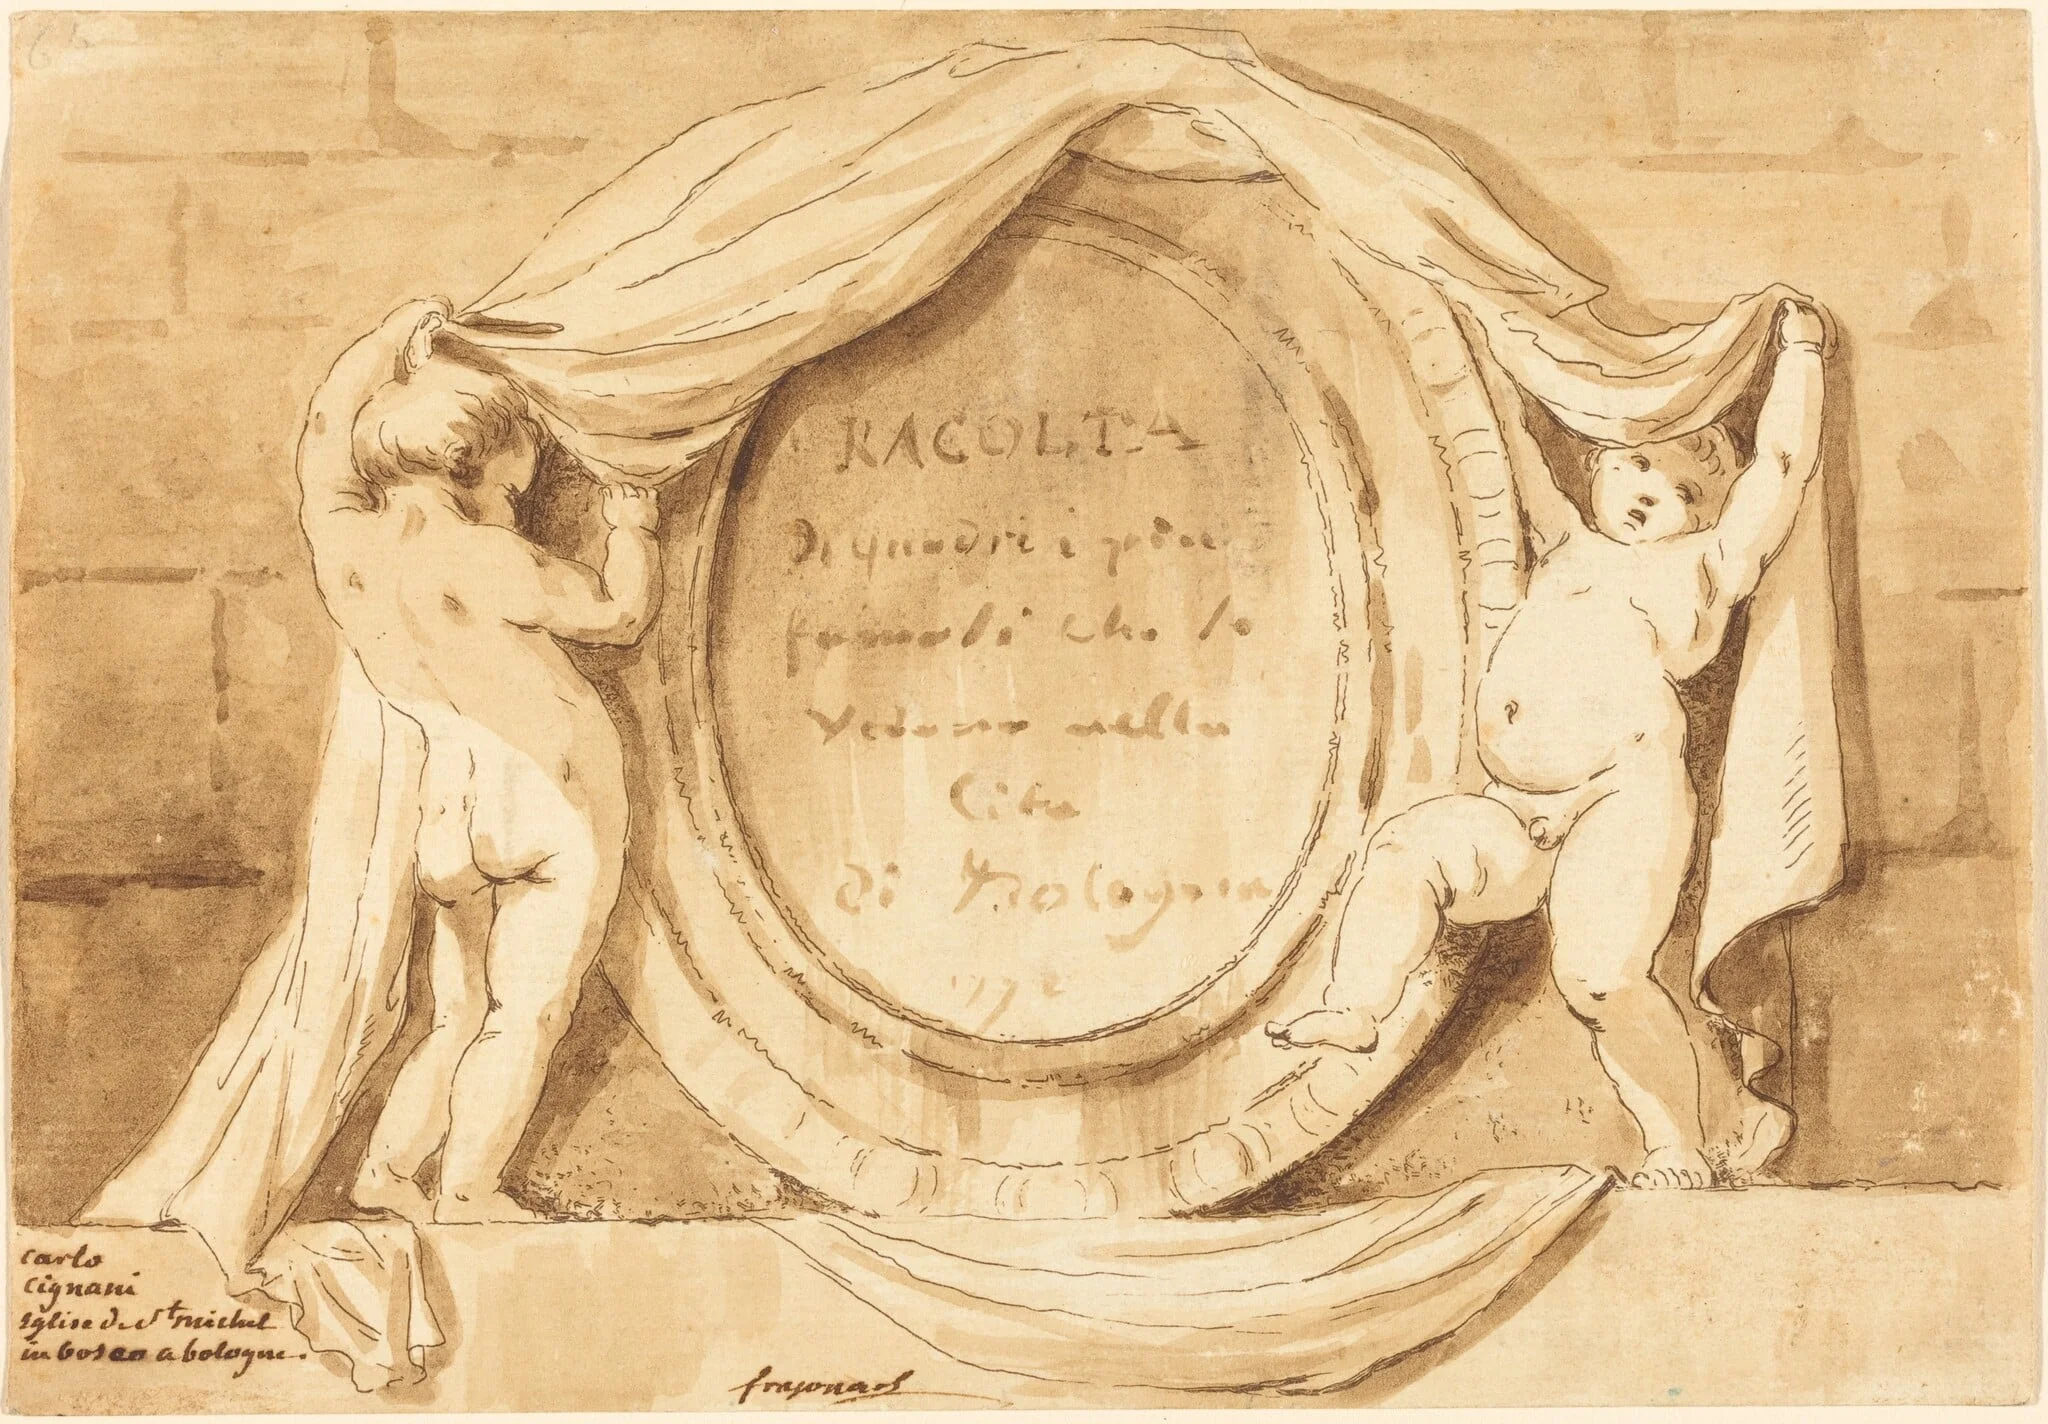 RACOLTA
di quadri i piu
famosi che si
vedano nella
Cita
di Bologna
1772
carlo
cignani
Eglise de St michel
in bosco a bologne.
fragonard